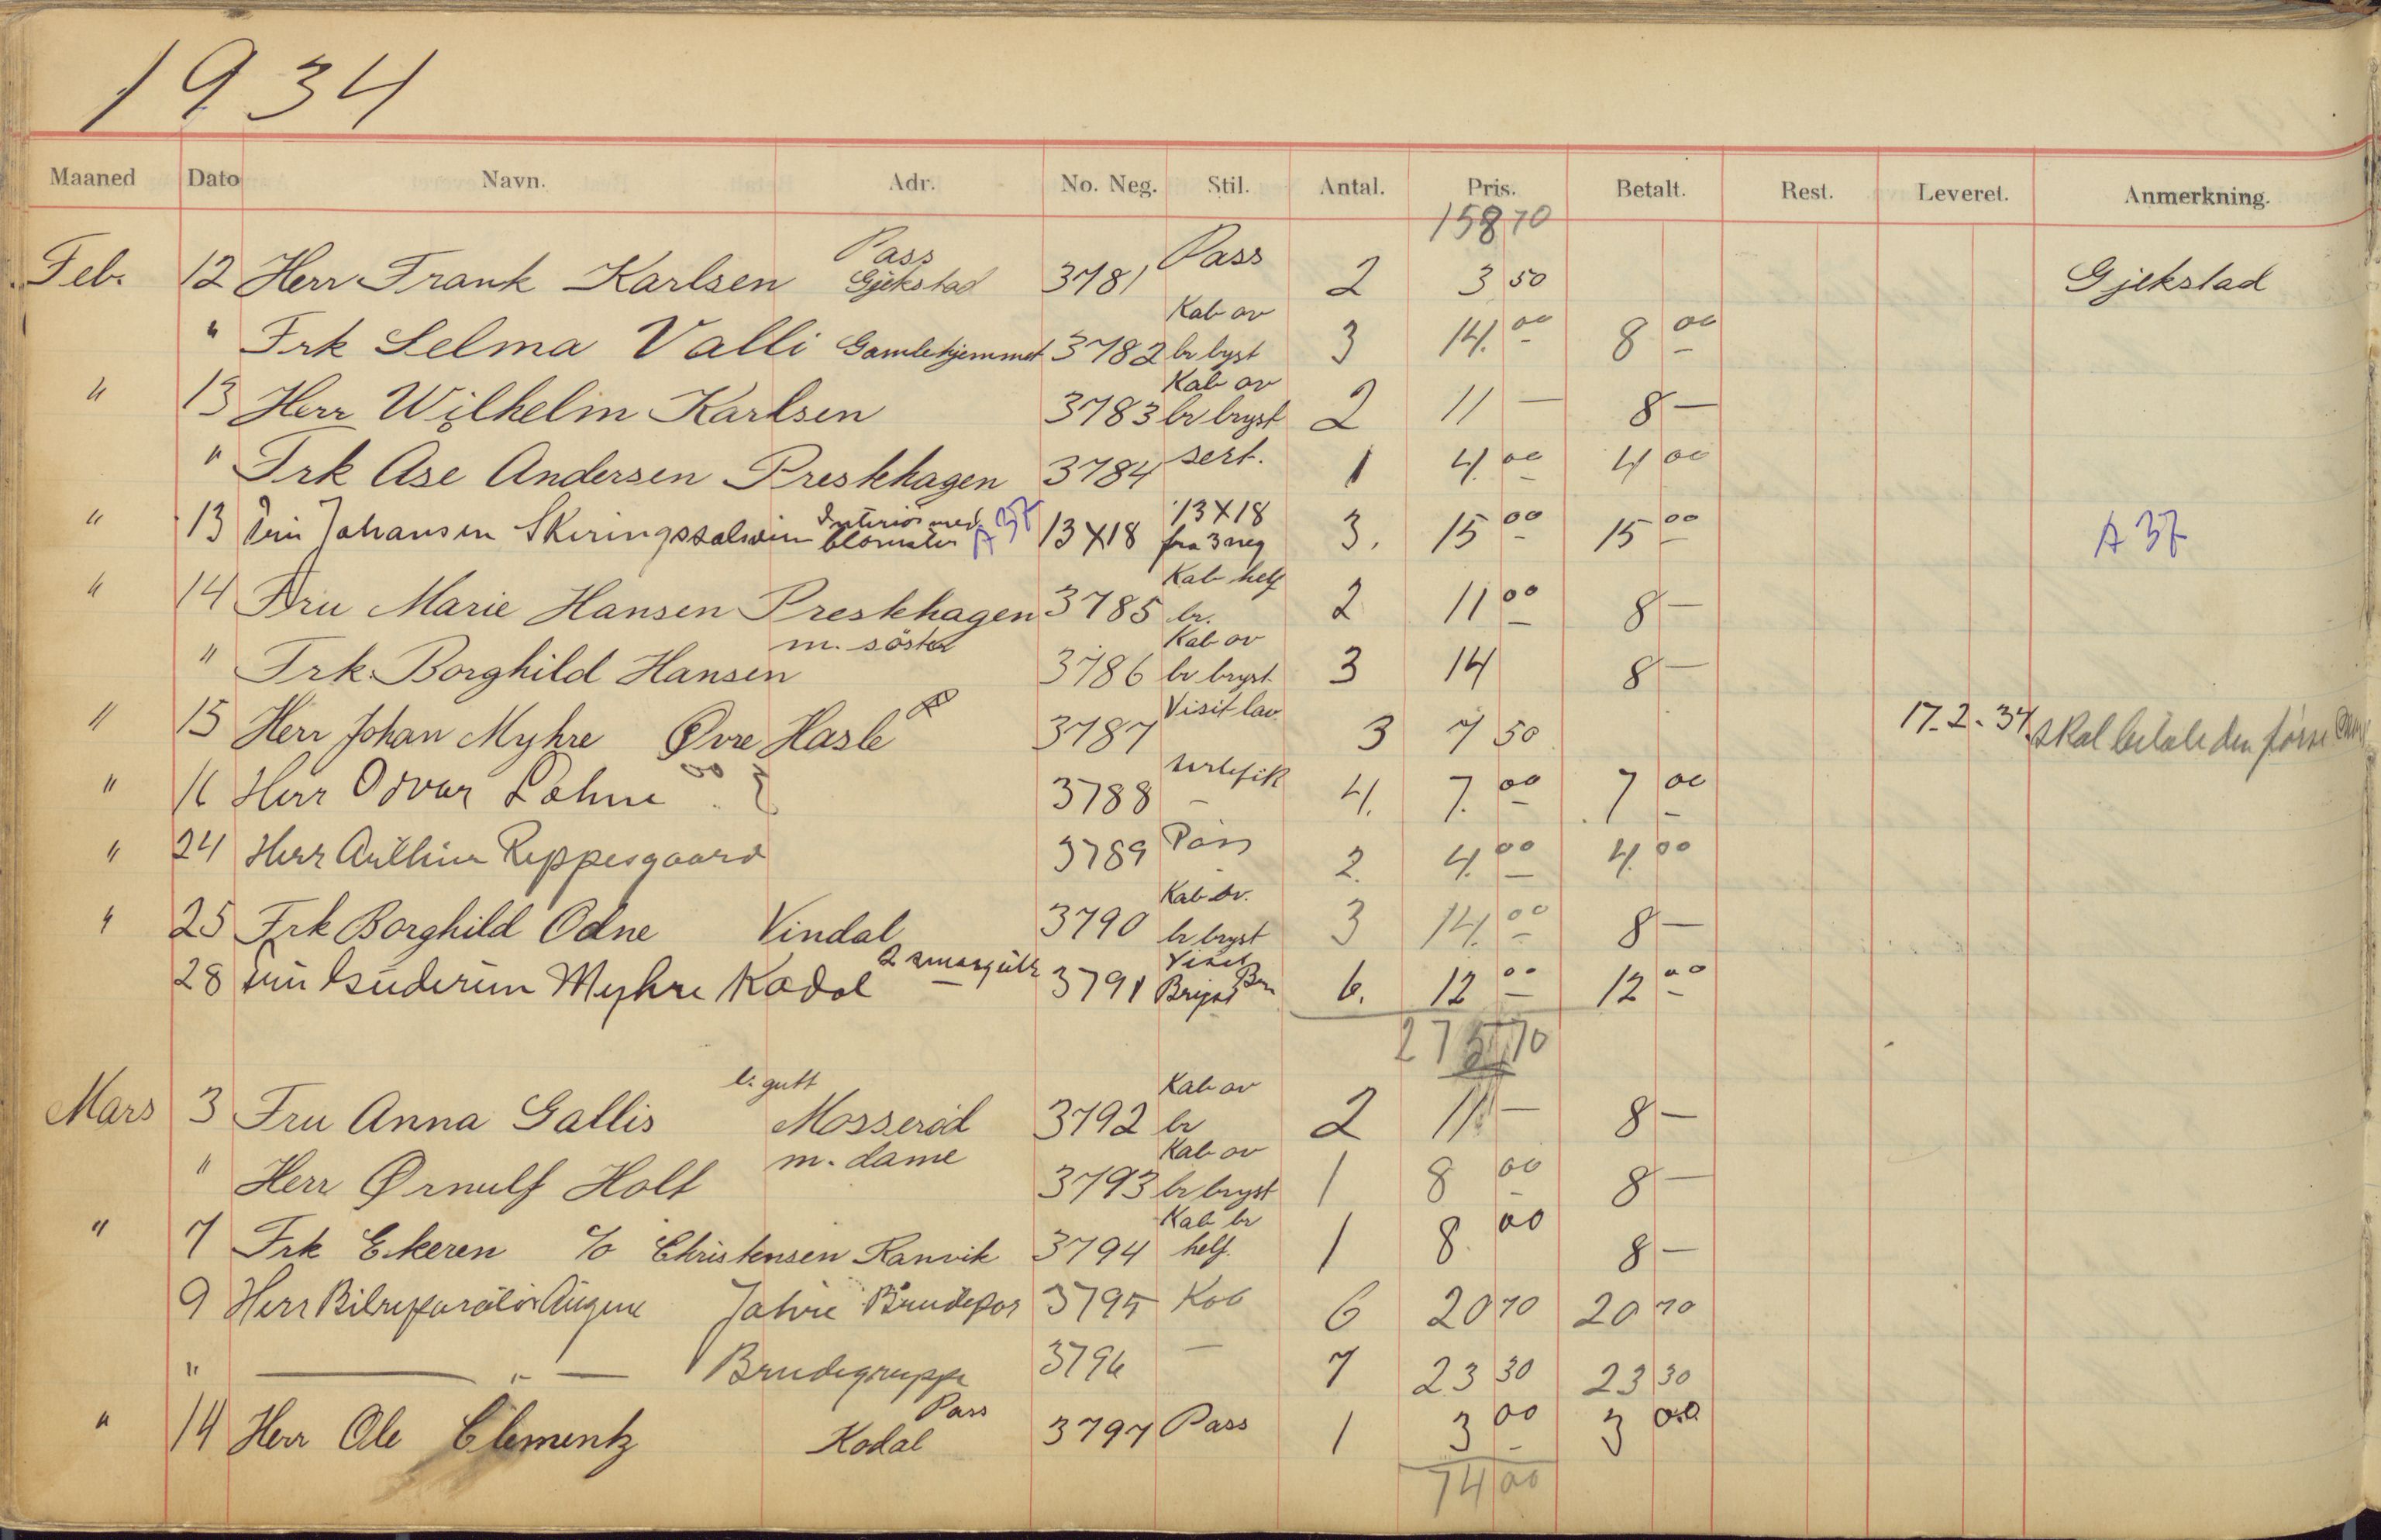 1934
Maaned Dato Navn. Adr. No. Neg. Stil. Antal. Pris. Betalt. Rest. Leveret. Anmerkning.
15870
Feb. 12 Herr Frank Karlsen Pass Gjekstad 3781 Pass 2 3 50 Gjekstad
" Frk Selma Valli Gamlehjemmet 3782 Kab ov br byst 3 14.00 8 00
" 13 Herr Wilhelm Karlsen 3783 Kab ov br bryst 2 11 — 8 —
" Frk Ase Andersen Preskhagen 3784 sert. 1 4.00 4 00
" 13 Johansen Interiör med 13X18 13X18 fra 3 neg 3. 15 00 15 00 A 37
" 14 Fru Marie Hansen Preskhagen 3785 Kab helf br. 2 11 00 8 —
" Frk. Borghild Hansen m. söster 3786 Kab ov br bryst 3 14 8 —
" 15 Herr Johan Myhre Øvre Hasle 3787 Visit lav 3 7 50 17-2-34 skal betale den første
" 16 Herr Odvar 3788 sertefik — 4. 7.00 7 00
" 24 Herr Reppesgaard 3789 Pass 2. 4.00 4.00
" 25 Frk Borghild Odne Vindal 3790 Kab ov. br bryst 3 14.00 8 —
28 Myhre Kodal 2 smaagutt 3791 Visit Bryst Br 6. 12 00 12 00
27 70
Mars 3 Fru Anna Gallis l. gutt Mosseröd 3792 Kab ov br 2 11 — 8 —
" Herr Ørnulf Holt m. dame 3793 Kab ov br bryst 1 8 00 8 —
" 7 Frk Ekeren c/o Christensen Ranvik 3794 Kab br helf. 1 8.00 8 —
9 Herr Bilreparatör Jahre Brudepar 3795 Kab 6 20 70 20 70
" — " — Brudegruppe 3796 — 7 23 30 23 30
" 14 Herr Ole Clementz Pass Kodal 3797 Pass 1 3 00 3 00
74 00